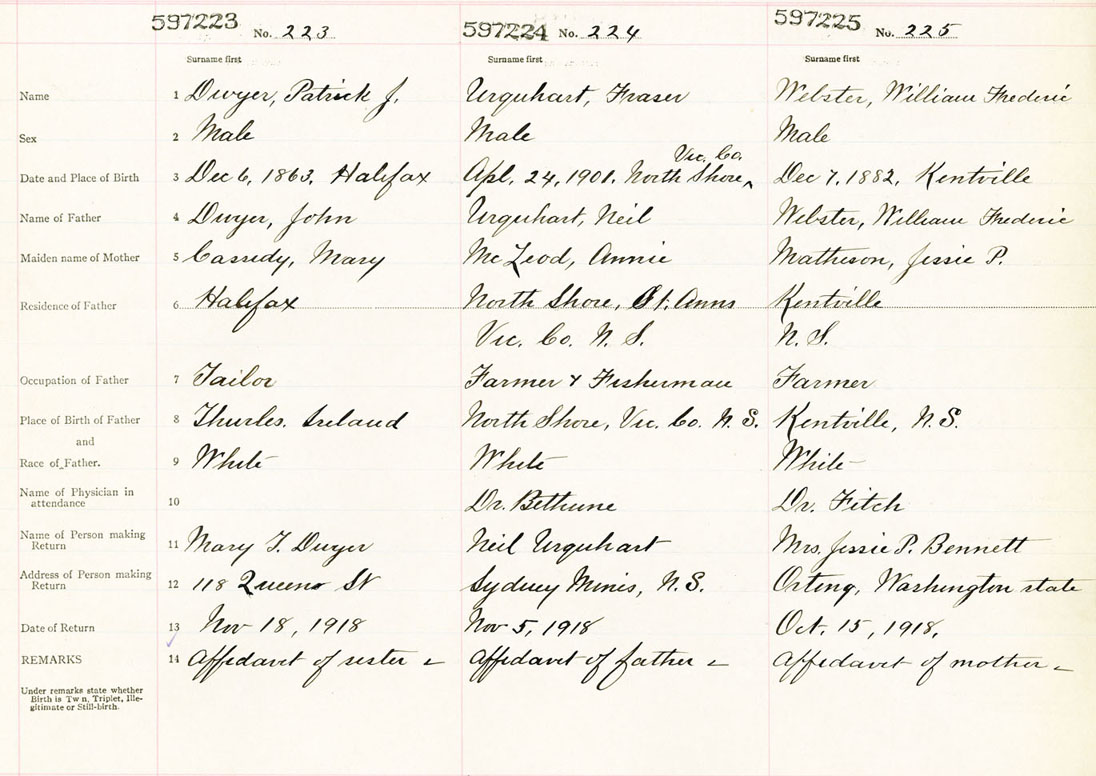 597223 No. 223 597224 No. 224 597225 No. 225
Surname first Surname first Surname first
Name 1 Dwyer, Patrick J. Urquhart, Fraser Webster, William Frederic
Sex 2 Male Male Male
Vic. Co.
Date and Place of Birth 3 Dec 6, 1863. Halifax Apl. 24, 1901. North Shore, Dec 7, 1882, Kentville
Name of Father 4 Dwyer, John Urquhart, Neil Webster, William Frederic
Maiden name of Mother 5 Cassedy, Mary McLeod, Annie Matheson, Jessie P.
Residence of Father 6 Halifax North Shore, St. Anns Kentville
Vic. Co. N. S. N. S.
Occupation of Father 7 Tailor Farmer & Fisherman Farmer
Place of Birth of Father 8 Thurles. Ireland North Shore, Vic. Co. N. S. Kentville, N.S.
and
Race of Father. 9 White White White
Name of Physician in
attendance 10 Dr. Bethune Dr. Fitch
Name of Person making
Return 11 Mary T. Dwyer Neil Urquhart Mrs. Jessie P. Bennett
Address of Person making
Return 12 118 Queen St Sydney Mines, N.S. Orting, Washington state
Date of Return 13 Nov 18, 1918 Nov 5, 1918 Oct. 15, 1918.
REMARKS 14 Affedavit of sister – Affedavit of father – Affedavit of mother –
Under remarks state whether
Birth is Tw n, Triplet, Ille-
gitimate or Still-birth.